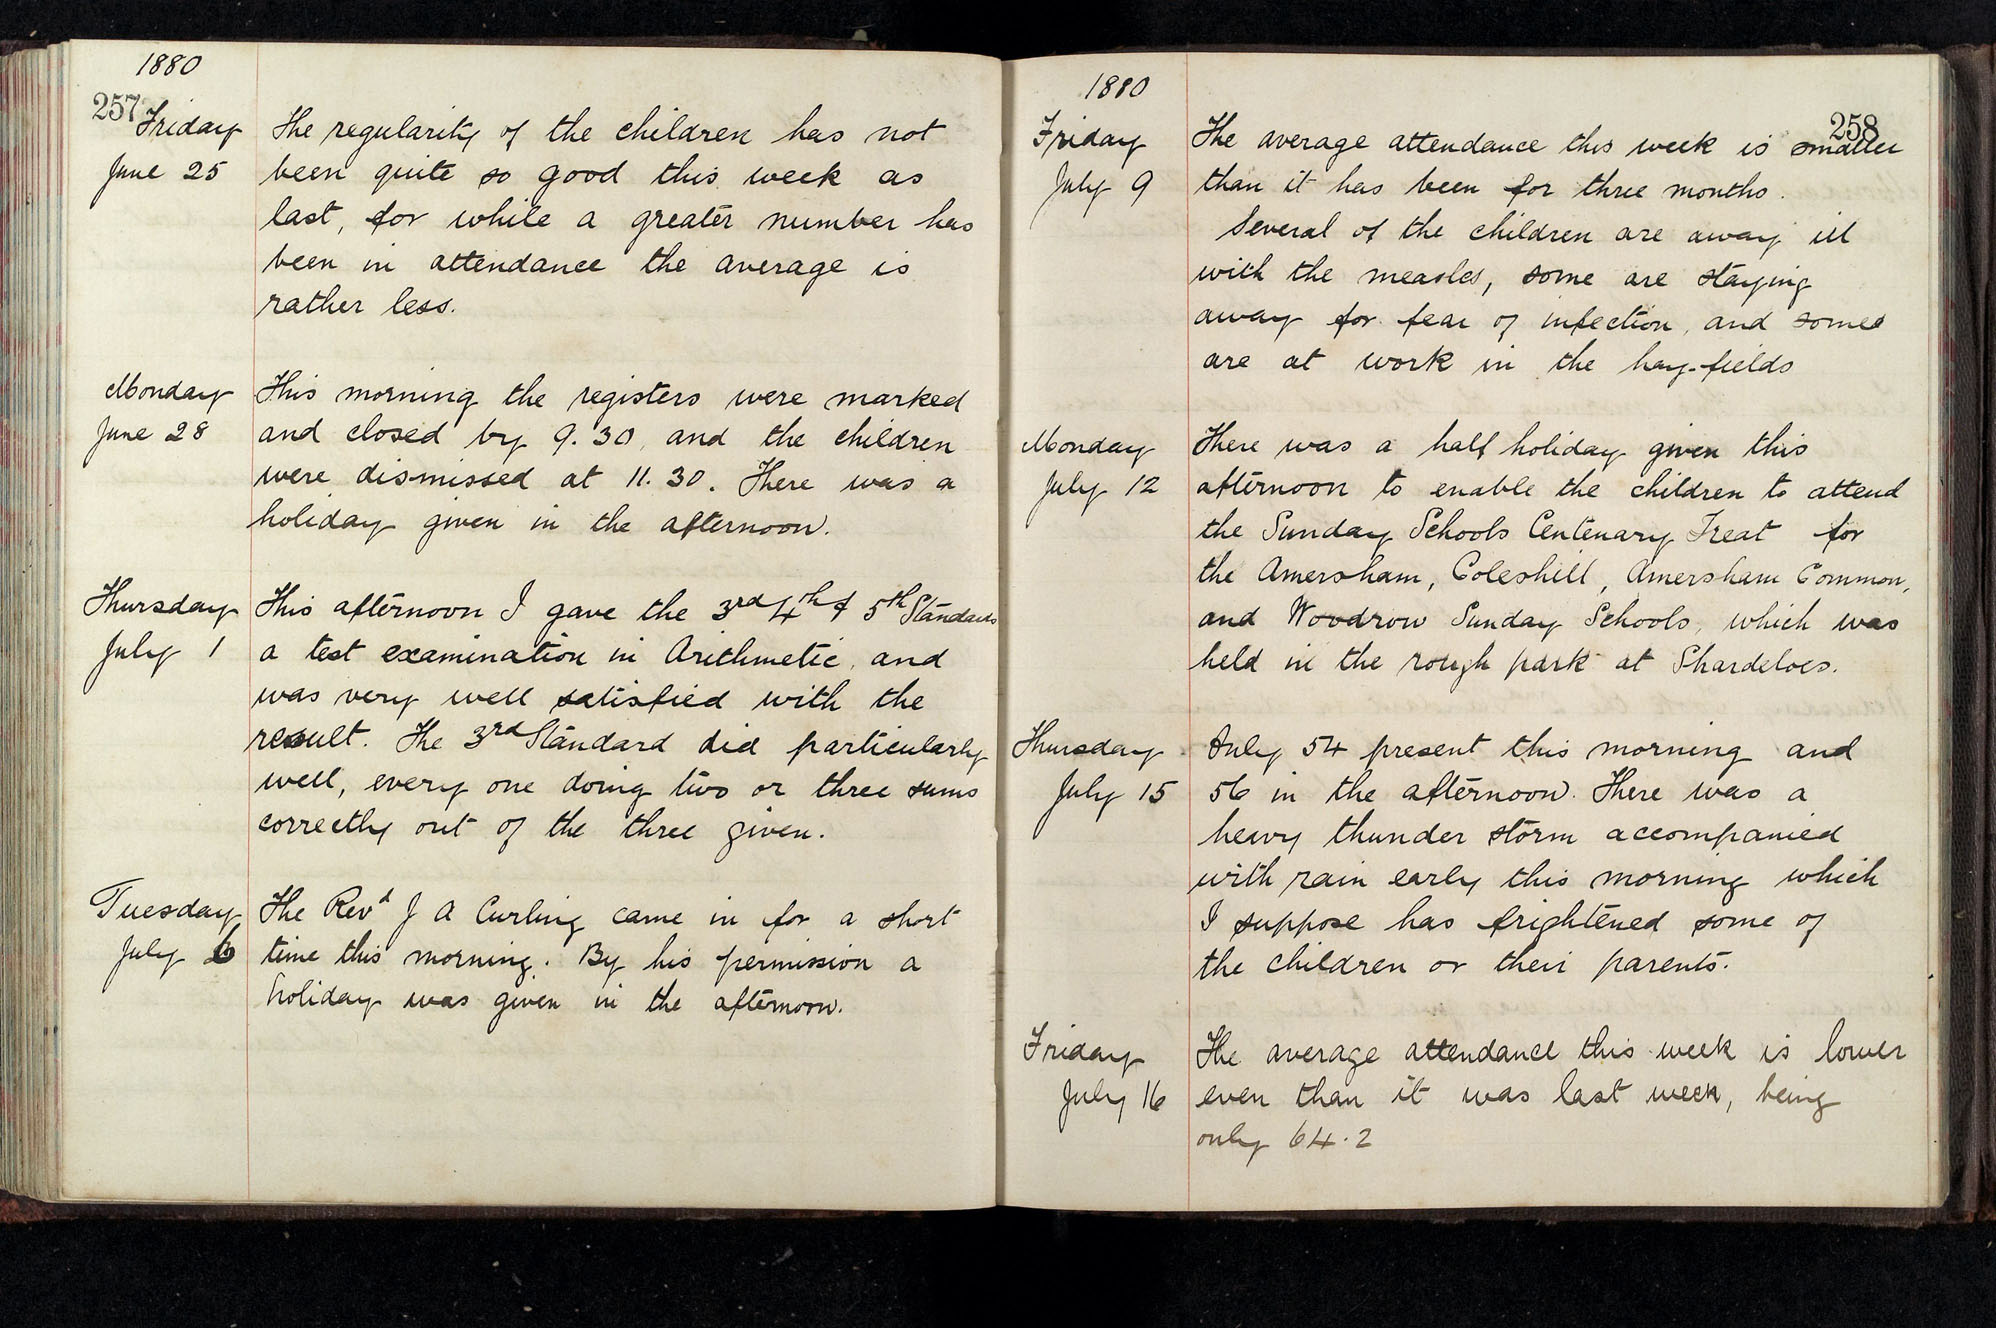 1880
257
Friday
June 25
The regularity of the children has not
been quite so good this week as
last, for while a greater number has
been in attendance the average is
rather less.
Monday
June 28
This morning the registers were marked
and closed by 9.30, and the children
were dismissed at 11.30. There was a
holiday given in the afternoon.
Thursday
July 1
This afternoon I gave the 3rd 4th & 5th Standards
a test examination in Arithmetic, and
was very well satisfied with the
result. The 3rd Standard did particularly
well, every one doing two or three sums
correctly out of the three given.
Tuesday
July 6
The Revd J A Curling came in for a short
time this morning. By his permission a
holiday was given in the afternoon.
1880
258
Friday
July 9
The average attendance this week is smaller
than it has been for three months.
Several of the children are away ill
with the measles, some are staying
away for fear of infection, and some
are at work in the hay-fields
Monday
July 12
There was a half holiday given this
afternoon to enable the children to attend
the Sunday Schools Centenary Treat for
the Amersham, Coleshill, Amersham Common,
and Woodrow Sunday Schools, which was
held in the rough park at Shardeloes.
Thursday
July 15
Only 54 present this morning and
56 in the afternoon. There was a
heavy thunder storm accompanied
with rain early this morning which
I suppose has frightened some of
the children or their parents.
Friday
July 16
The average attendance this week is lower
even than it was last week, being
only 64.2